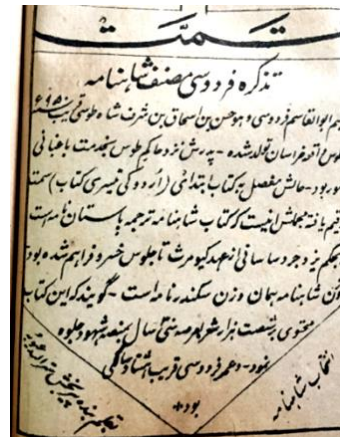 تمت
تذکره فردوسی مصنف شاهنامه
ابوالقاسم فردوسی و هو حسن بن اسحاق بن شرف شاه طوسی قریب
طوس واقع خراسان تولد شده - پدرش نزد حاکم طوس بخدمت باغبانی
بود - حالش مفصل به کتاب ابتدائی (اردو کی تیسری کتاب)
یافته مجملش اینست که کتاب شاهنامه ترجمه باستان نامه است
بحکم یزدجرد ساسانی از عهد کیومرث تا جلوس خسرو فراهم شده بود
وزن شاهنامه همان وزن سکندرنامه است - گویند که این کتاب
محتوی بر شصت هزار شعر بعرصه سی سال بمنصه شهود جلوه
نمود - و عمر فردوسی قریب هشتاد سالگی
بود
انتخاب شاهنامه